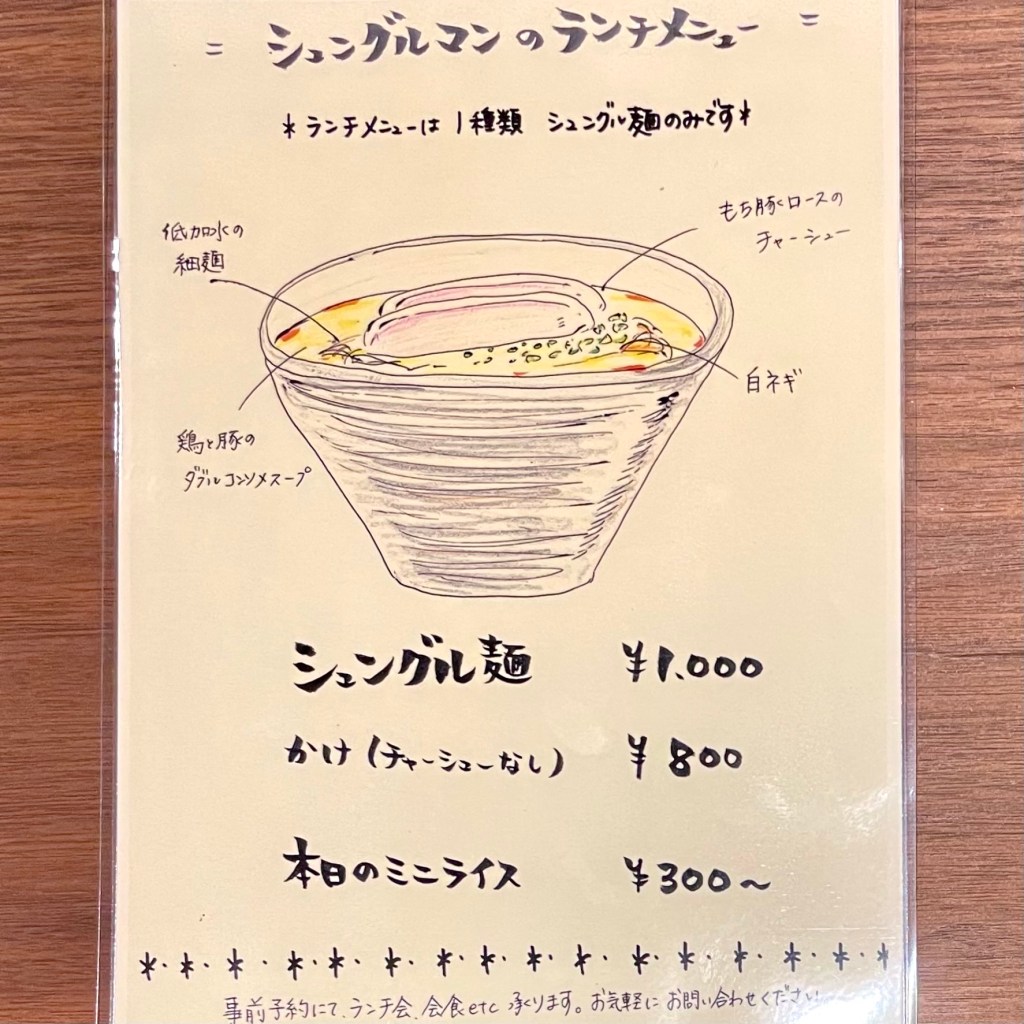 = シュングルマンのランチメニュー =
*ランチメニューは1種類 シュングル麺のみです*
もち豚ロースの
チャーシュー
低加水の
細麺
白ネギ
鶏と豚の
ダブルコンソメスープ
シュングル麺 ¥1.000
かけ(チャーシューなし) ¥800
本日のミニライス ¥300~
事前予約にて、ランチ会、会食etc承ります。お気軽にお問い合わせください